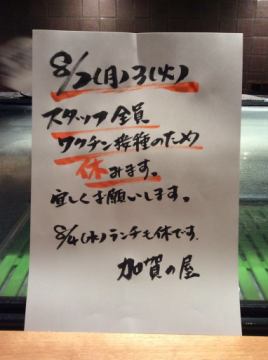 8/2(月)3(火)
スタッフ全員
ワクチン接種のため
休みます。
宜しくお願いします。
8/4(水)ランチも休です.
加賀の屋